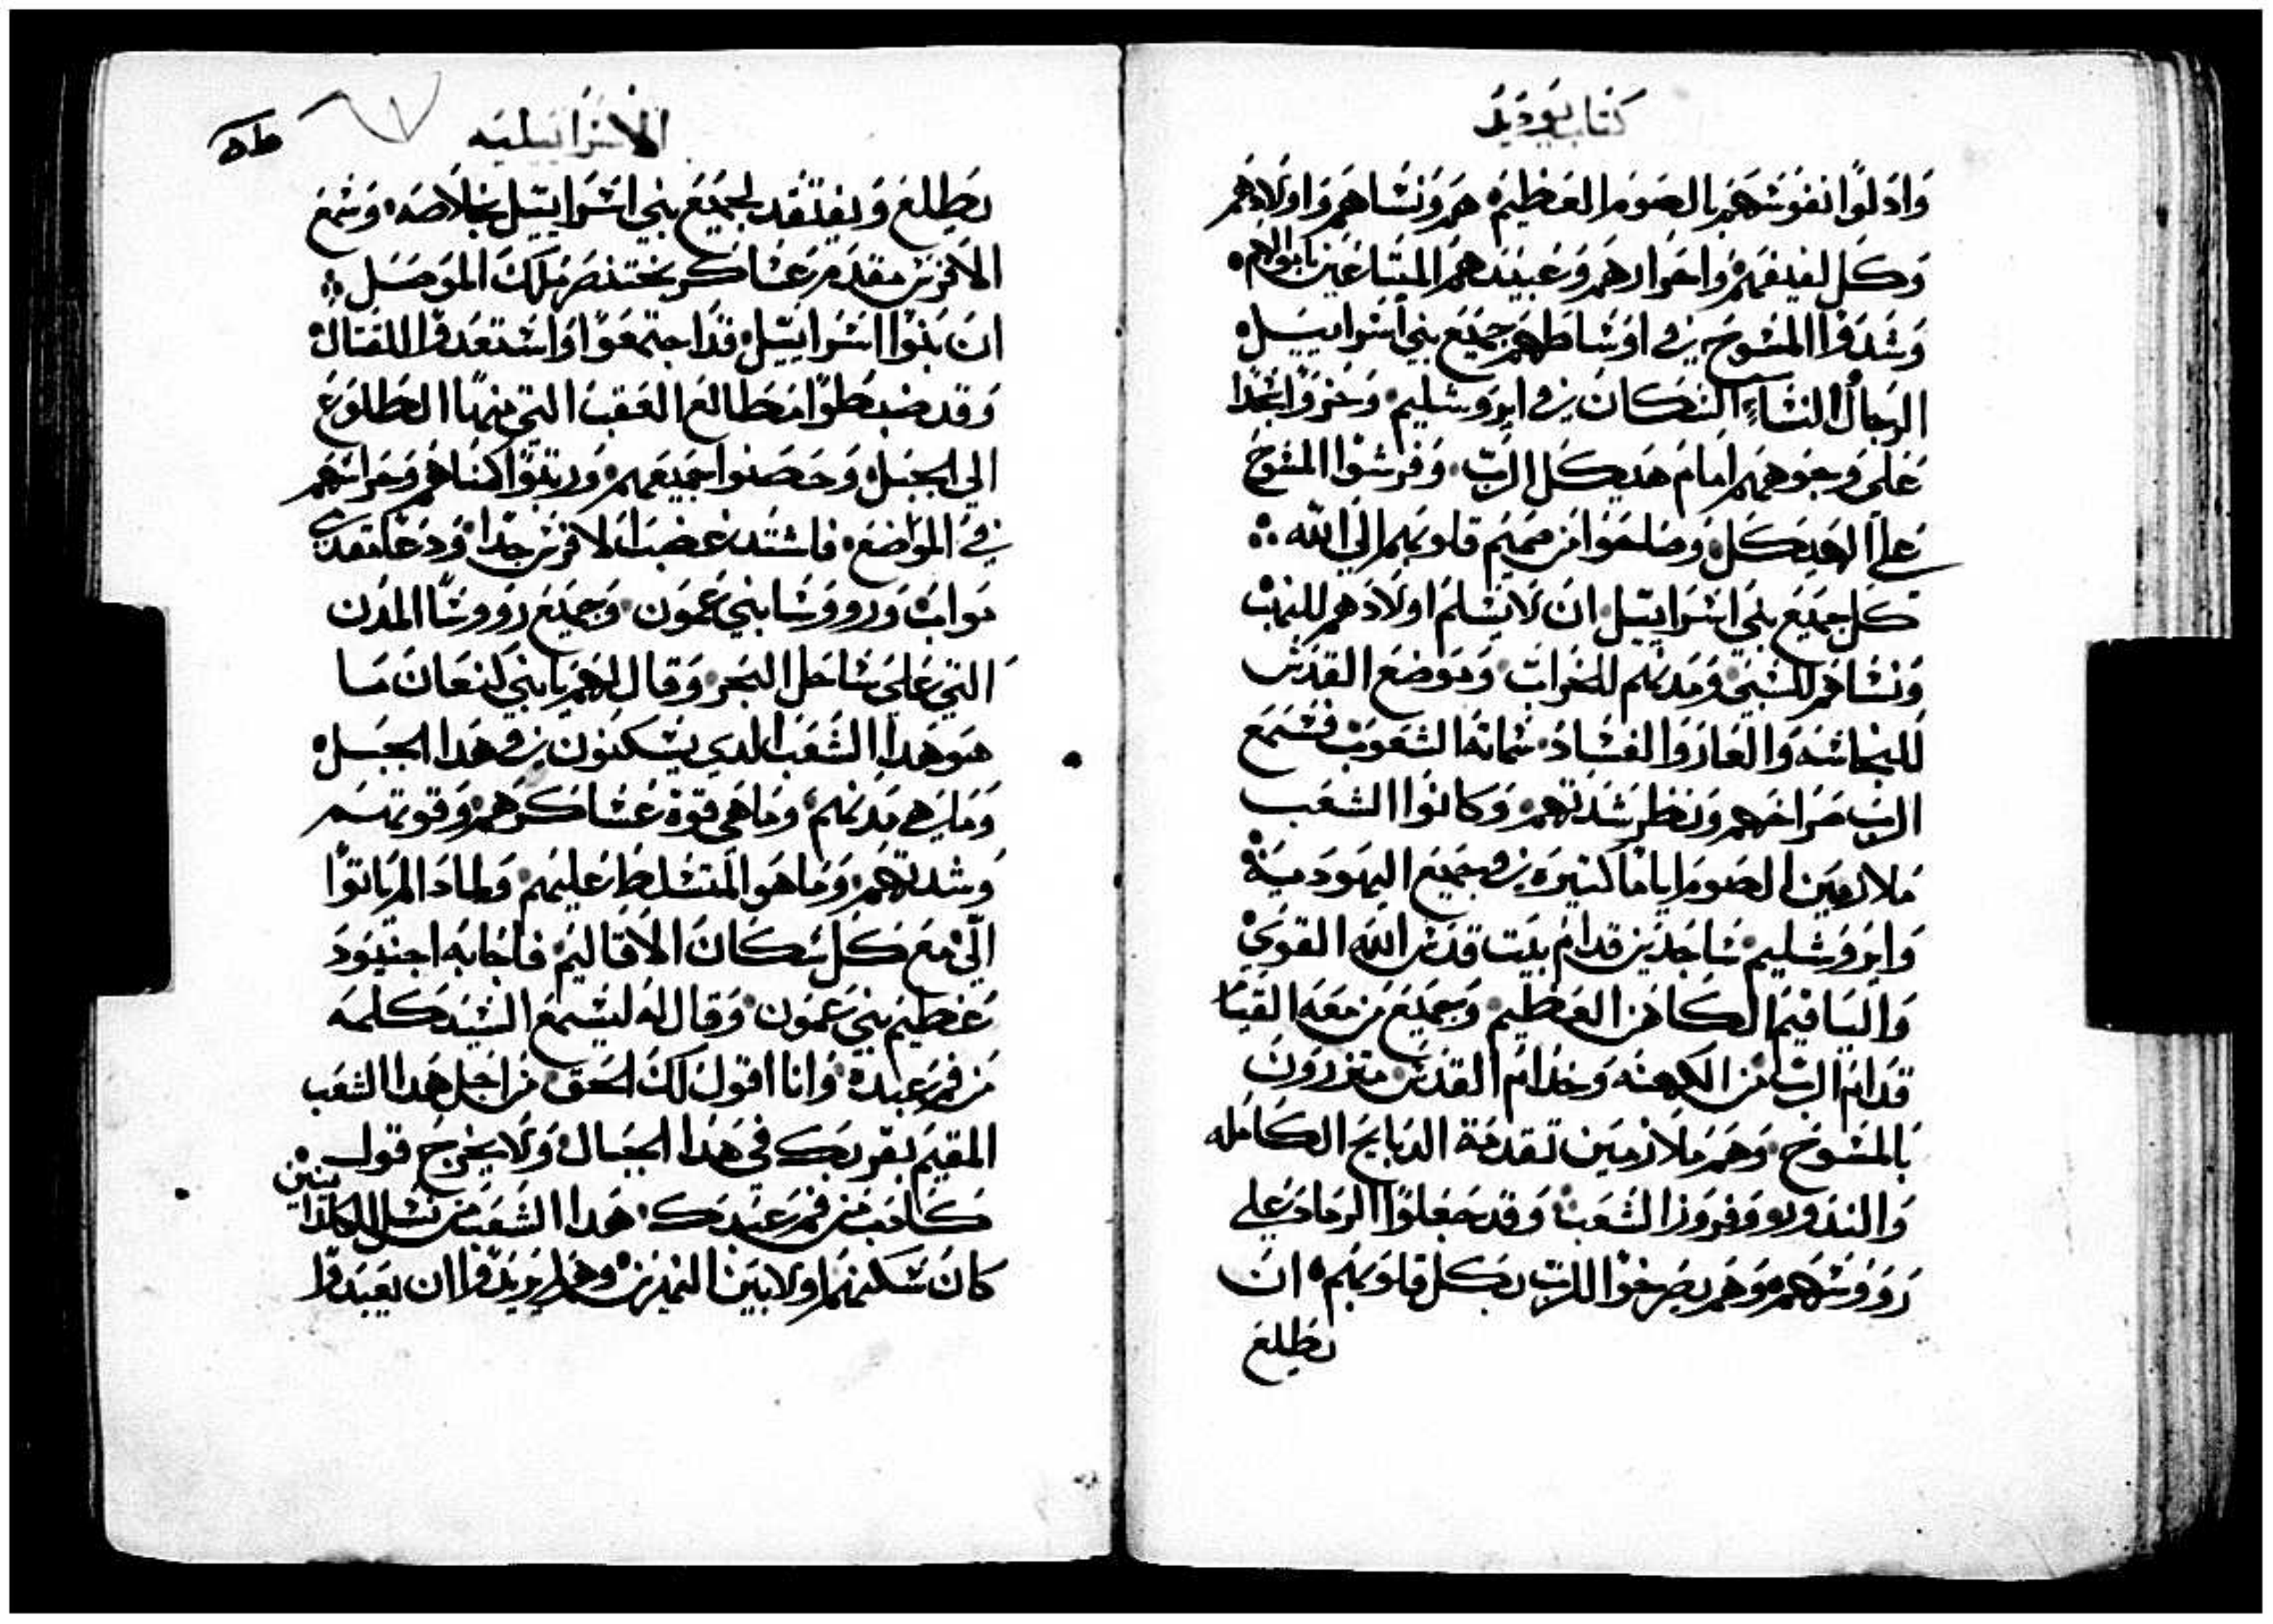 كتاب يوديد
وادلوا نفوسهم بالصوم العظيم هم ونساهم واولادهم
وكل لفيفهم واحوارهم وعبيدهم المبتاعين باموالهم
وشدوا المسوح في اوساطهم جميع بني اسراييل
الرجال النساء السكان في ايروشليم وخروا سجدا
على وجوههم امام هيكل الرب وفرشوا المسوح
على الهيكل وصلحوا من صميم قلوبهم الي الله
كل جميع بني اسراييل ان لا يسلم اولادهم للنهب
ونساهم للسبي ومدنهم للخراب وموضع القدس
للنجاسه والعار والفساد شماتة الشعوب فسمع
الرب صراخهم ونظر شدتهم وكانوا الشعب
ملازمين الصوم اياما كثيره في جميع اليهوديه
وايروشليم ساجدين قدام بيت قدس الله القوي
والياقيم الكاهن العظيم وجميع من معه القيام
قدام الرب من الكهنه وخدام القدس متزرون
بالمسوح وهم ملازمين تقدمة الدبايح الكامله
والندور وفروز الشعب وقد جعلوا الرماد علي
رووسهم وهم يصرخوا للرب بكل قلوبهم ان
يطلع
الاسراييليه
يطلع ويفتقد لجميع بني اسراييل بخلاصه وسمع
الافرنس مقدم عساكر بختنصر ملك الموصل
ان بنوا اسراييل قد اجتمعوا واستعدوا للقتال
وقد ضبطوا مطالع العقب التي منها الطلوع
الي الجبل وحصنوا جميعهم ورتبوا كمناهم وحراسهم
في المواضع فاشتد غضب الافرنس جدا ودخل مقدمي
مواب ورووسا بني عمون وجميع رووسا المدن
التي على ساحل البحر وقال لهم يا بني كنعان ما
هو هدا الشعب الدي يسكنون في هدا الجبل
وما هي مدنهم وما هي قوة عساكرهم وقوتهم
وشدتهم وما هو المتسلط عليهم ولمادا لم ياتوا
الي مع كل سكان الاقاليم فاجابه اجنيود
عظيم بني عمون وقال له ليسمع السيد كلمه
من فم عبده وانا اقول لك الحق من اجل هدا الشعب
المقيم بقربك في هدا الجبال ولا يخرج قول
كادب من فم عبدك هدا الشعب من نسل الكلدانيين
كان سكنهم اولا بين النهرين وهم لم يريدوا ان يعبدوا